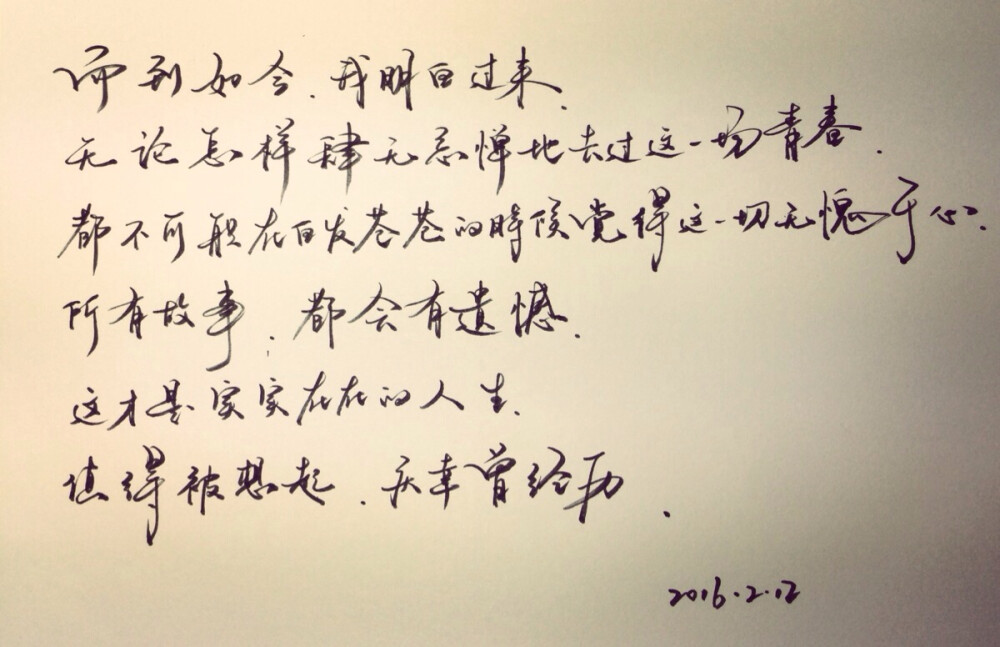 而到如今.我明白过来.
无论怎样肆无忌惮地去过这一场青春.
都不可能在白发苍苍的時候觉得这一切无愧于心.
所有故事.都会有遗憾.
这才是实实在在的人生.
值得被想起.庆幸曾经历.
2016.2.12